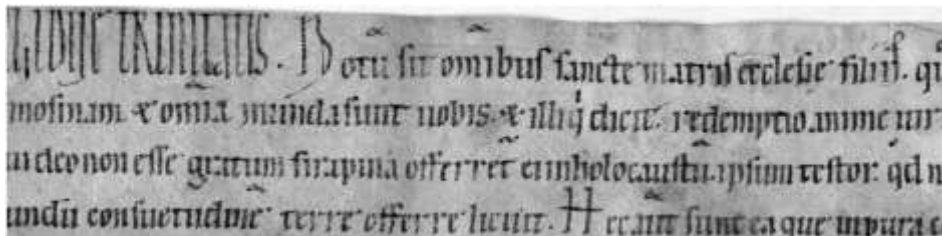 TRINITATIS. Notū sit om̄ibus sancte matris ecclesie filiis. qu
mosinam & om̄ia munda sunt uobis. & illi q̇ dicit. redemptio anime uir
ū deo non esse gratum si rapina offerret̄ ei in holocaustū. ipsum testor. qd n
undū consuetudinē terre offerre licuit. Hec aūt sunt ea que in pura e